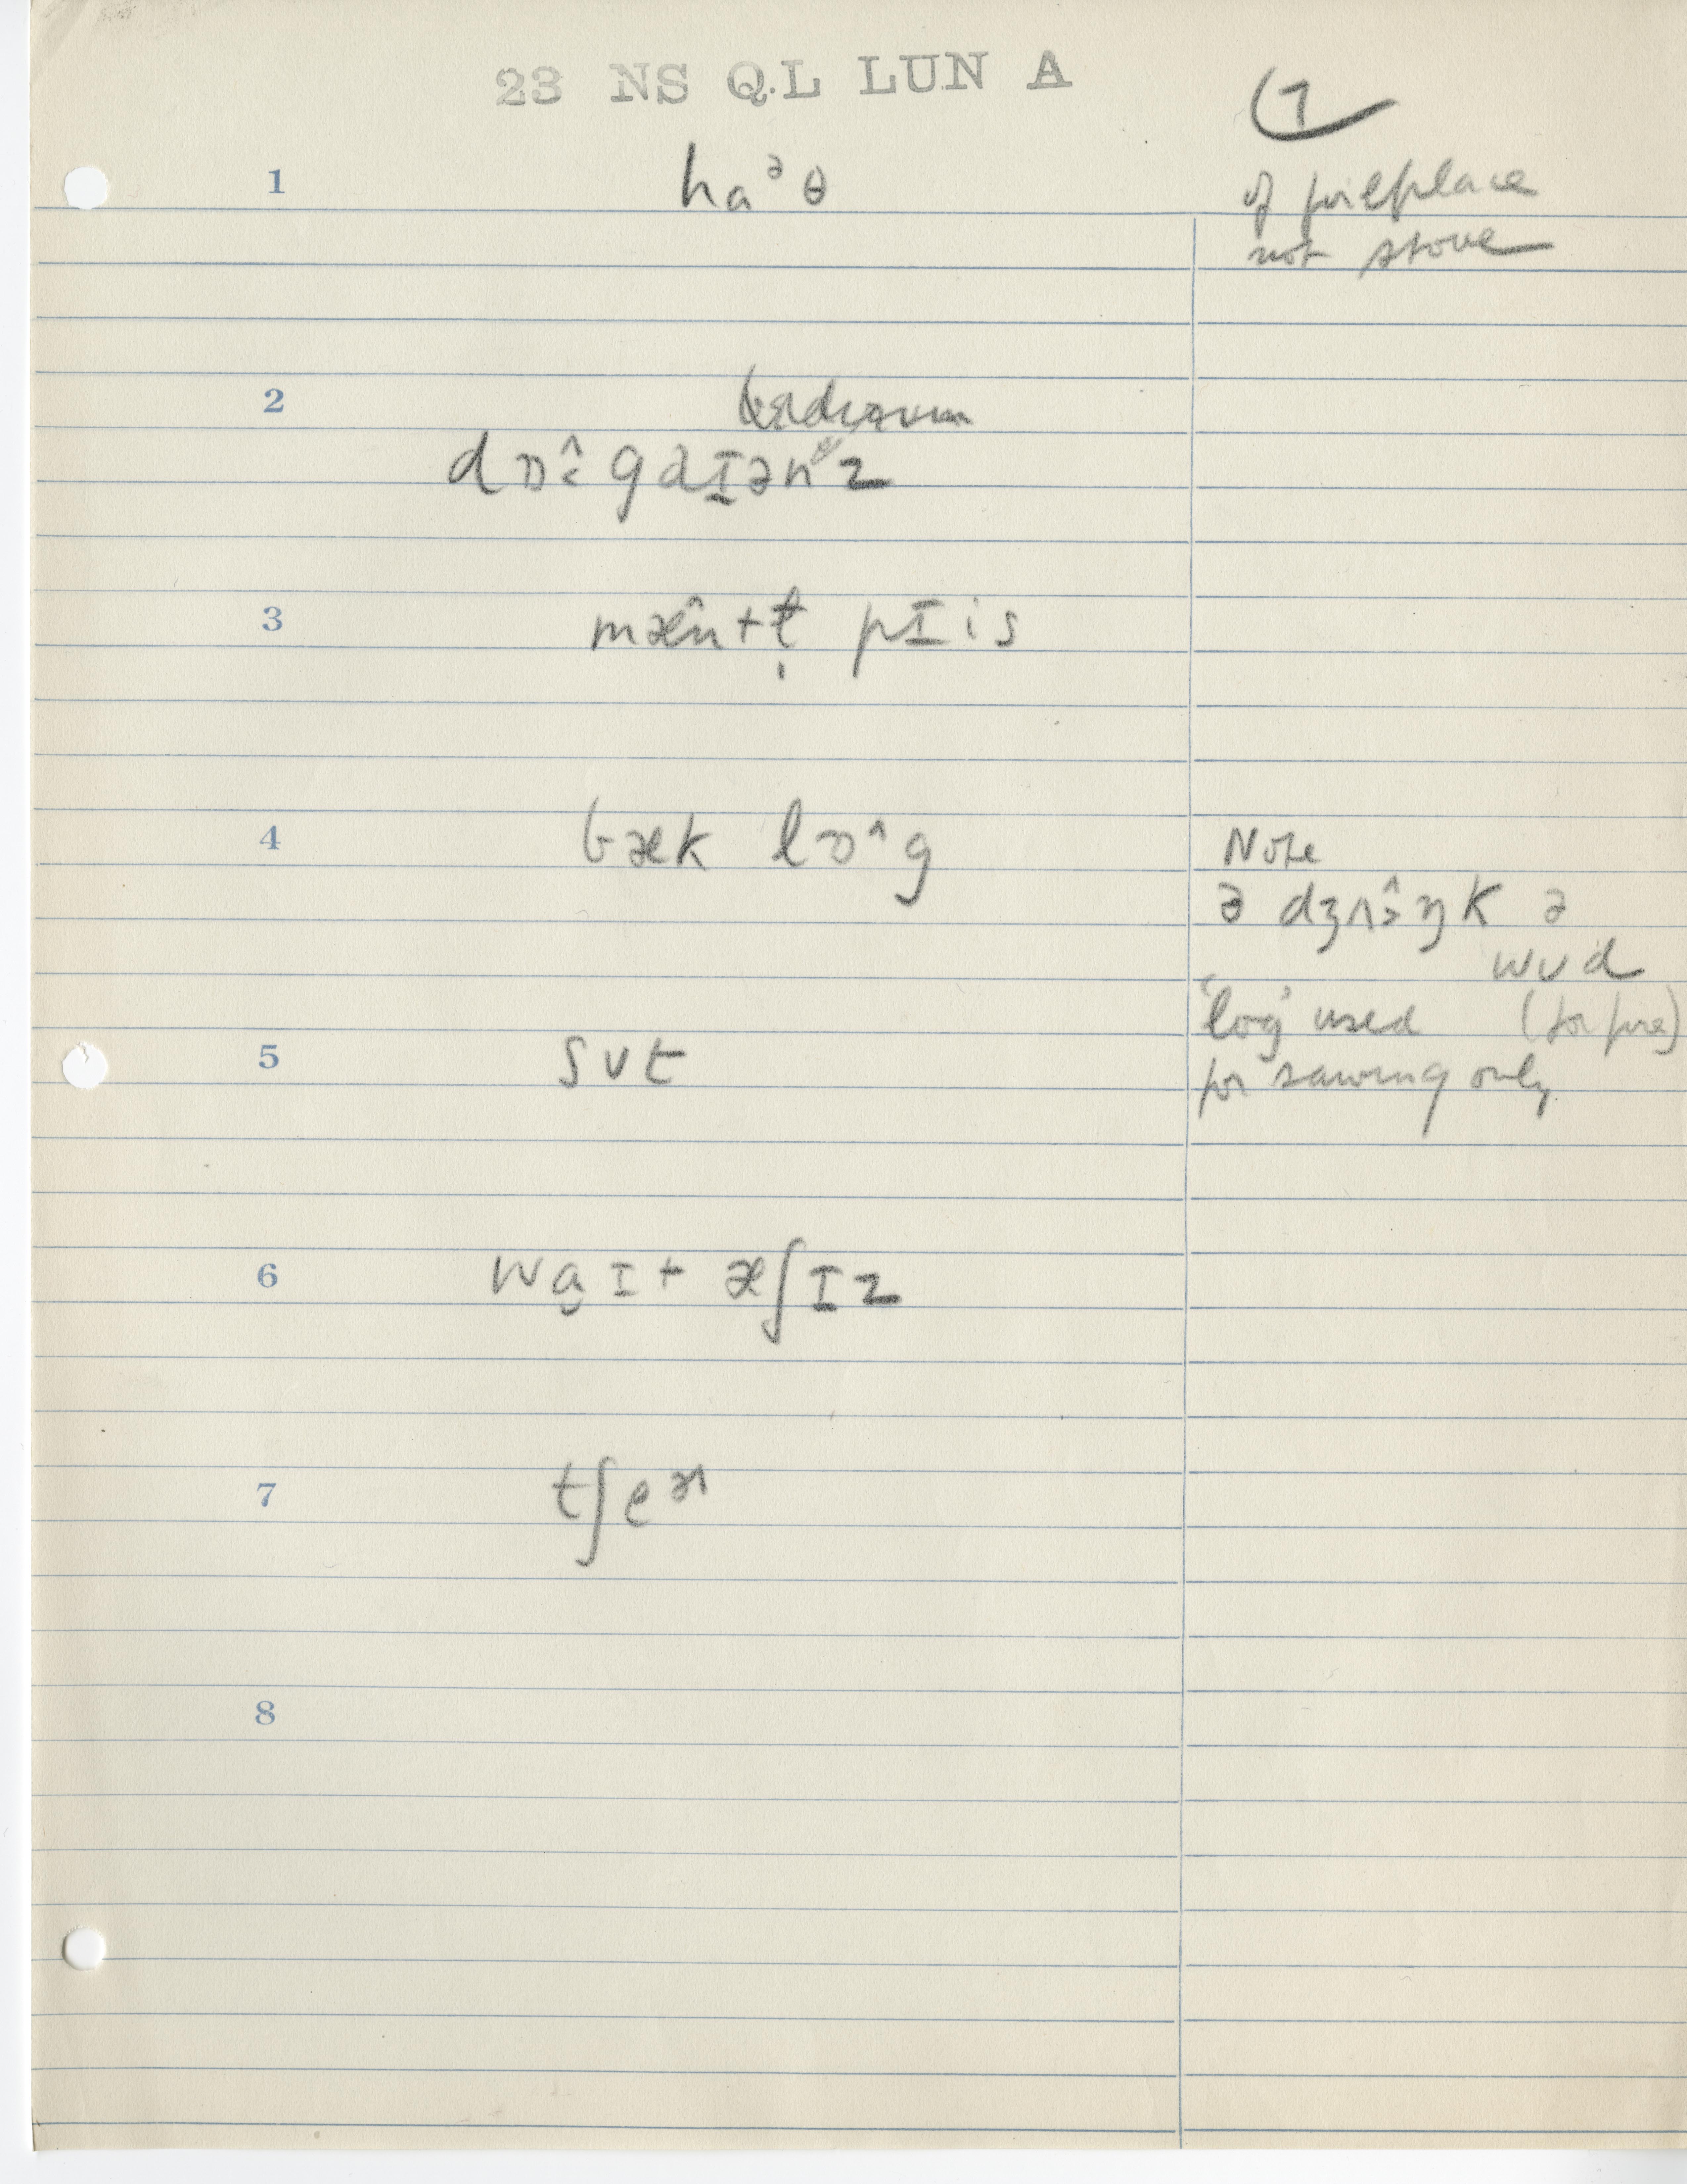 23 NS Q.L LUN A
7
1 haᵊθ of fireplace
not stove
2
dɒ˄˂gaɪənz
3 mæ˄n+t̩ pɪis
4 bæk lɒ˄g Note
ə dʒʌ˄˃ŋk ə
wʊd
'log' used (for fire)
5 sʊt for sawing only
6 waɪ+ æʃɪz
7 tʃeɚ
8